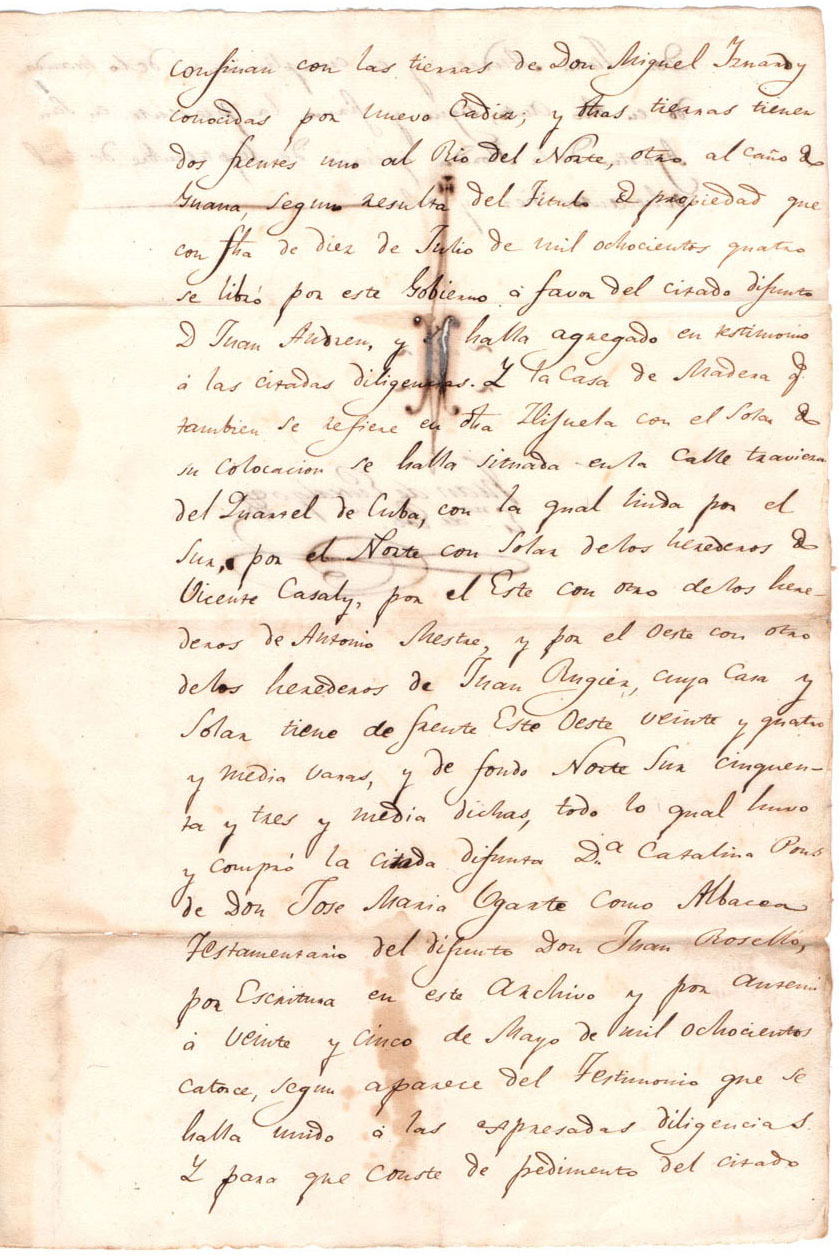 confinan con las tierras de Don Miguel Iznardy
conocidas por Nuevo Cadiz; y dhas tierras tienen
dos frentes uno al Rio del Norte, otro al caño de
Guana, segun resulta del Titulo de propiedad que
con fha de diez de Julio de mil ochocientos quatro
se libró por este Gobierno á favor del citado difunto
D Juan Andreu, y se halla agregado en testimonio
á las citadas diligencias. Y la Casa de Madera q.
tambien se refiere en dha Hijuela con el Solar de
su colocacion se halla situada en la Calle traviesa
del Quartel de Cuba, con la qual linda por el
Sur, por el Norte con Solar delos herederos de
Vicente Casaly, por el Este con otro delos here-
deros de Antonio Mestre, y por el Oeste con otro
delos herederos de Juan Rugier, cuya Casa y
Solar tiene de frente Este Oeste veinte y quatro
y media varas, y de fondo Norte Sur cinquen-
ta y tres y media dichas, todo lo qual huvo
y compró la citada difunta D.ª Catalina Pons
de Don Jose Maria Ugarte como Albacea
Testamentario del difunto Don Juan Roselló,
por Escritura en este Archivo y por antemi
á veinte y cinco de Mayo de mil ochocientos
catorce, segun aparece del Testimonio que se
halla unido á las espresadas diligencias.
Y para que conste de pedimento del citado